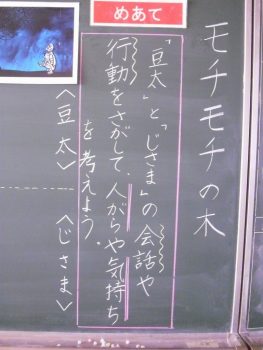 モチモチの木
めあて
「豆太」と「じさま」の会話や
行動をさがして、人がらや気持ち
を考えよう。
〈豆太〉 〈じさま〉